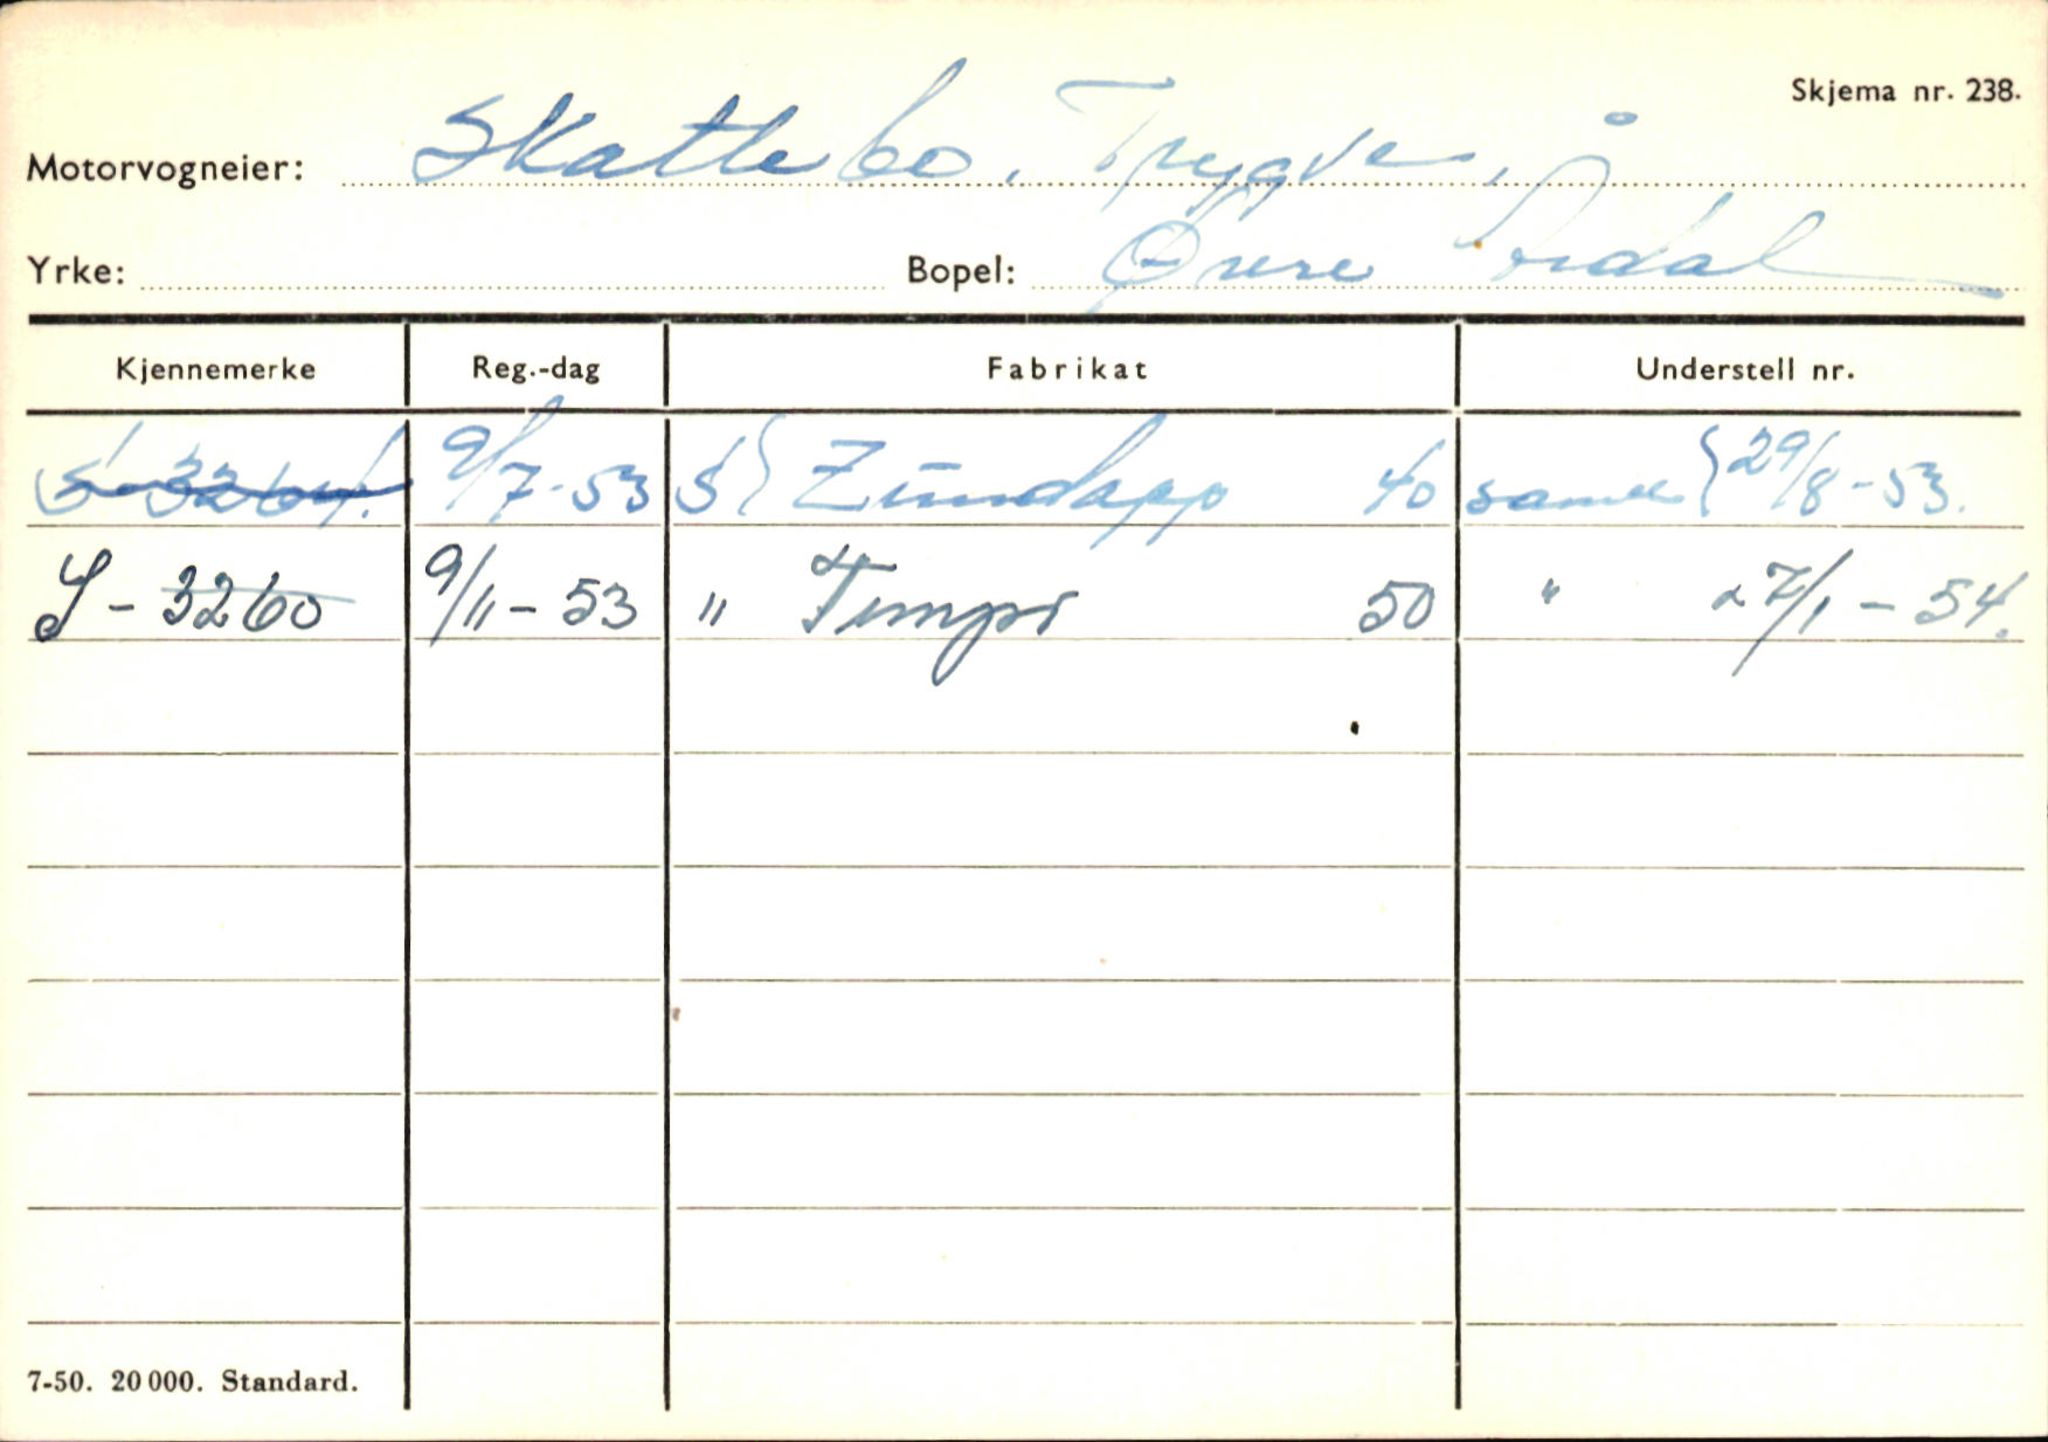 Skjema nr. 238.
Motorvogneier: Skattebo. Trygve,
Yrke: Bopel: Øvre Årdal
Kjennemerke Reg.-dag Fabrikat Understell nr.
S-3264. 9/7-53 S { Zündapp 40 samme { 29/8-53.
S-3260 9/11-53 " Tempo 50 " 27/1-54.
7-50. 20 000. Standard.